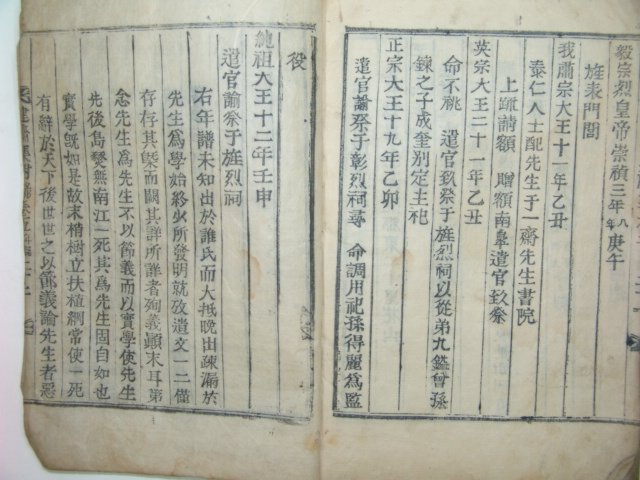 毅宗烈皇帝崇禎三年八年庚午
旌表門閭
我肅宗大王十一年乙丑
泰仁人士配先生于一齋先生書院
上疏請額 贈額南皐遣官致祭
英宗大王二十一年乙丑
命不祧 遣官致祭于旌烈祠以從弟九鎰會孫
鍊之子成奎別定主祀
正宗大王十九年乙卯
遣官諭祭于彰烈祠尋 命調用祀孫得麗爲監
役
純祖大王十二年壬申
遣官諭祭于旌烈祠
右年譜未知出於誰氏而大抵晩出疎漏於
先生爲學始終少所發明就攷遺文一二僅
存存其槩而闕其詳所詳者殉義顚末耳第
念先生爲先生不以節義而以實學使先生
先後島變無南江一死其爲先生固自如也
實學旣如是故末稍樹立扶植綱常使一死
有辭於天下後世世之以節義論先生者惡